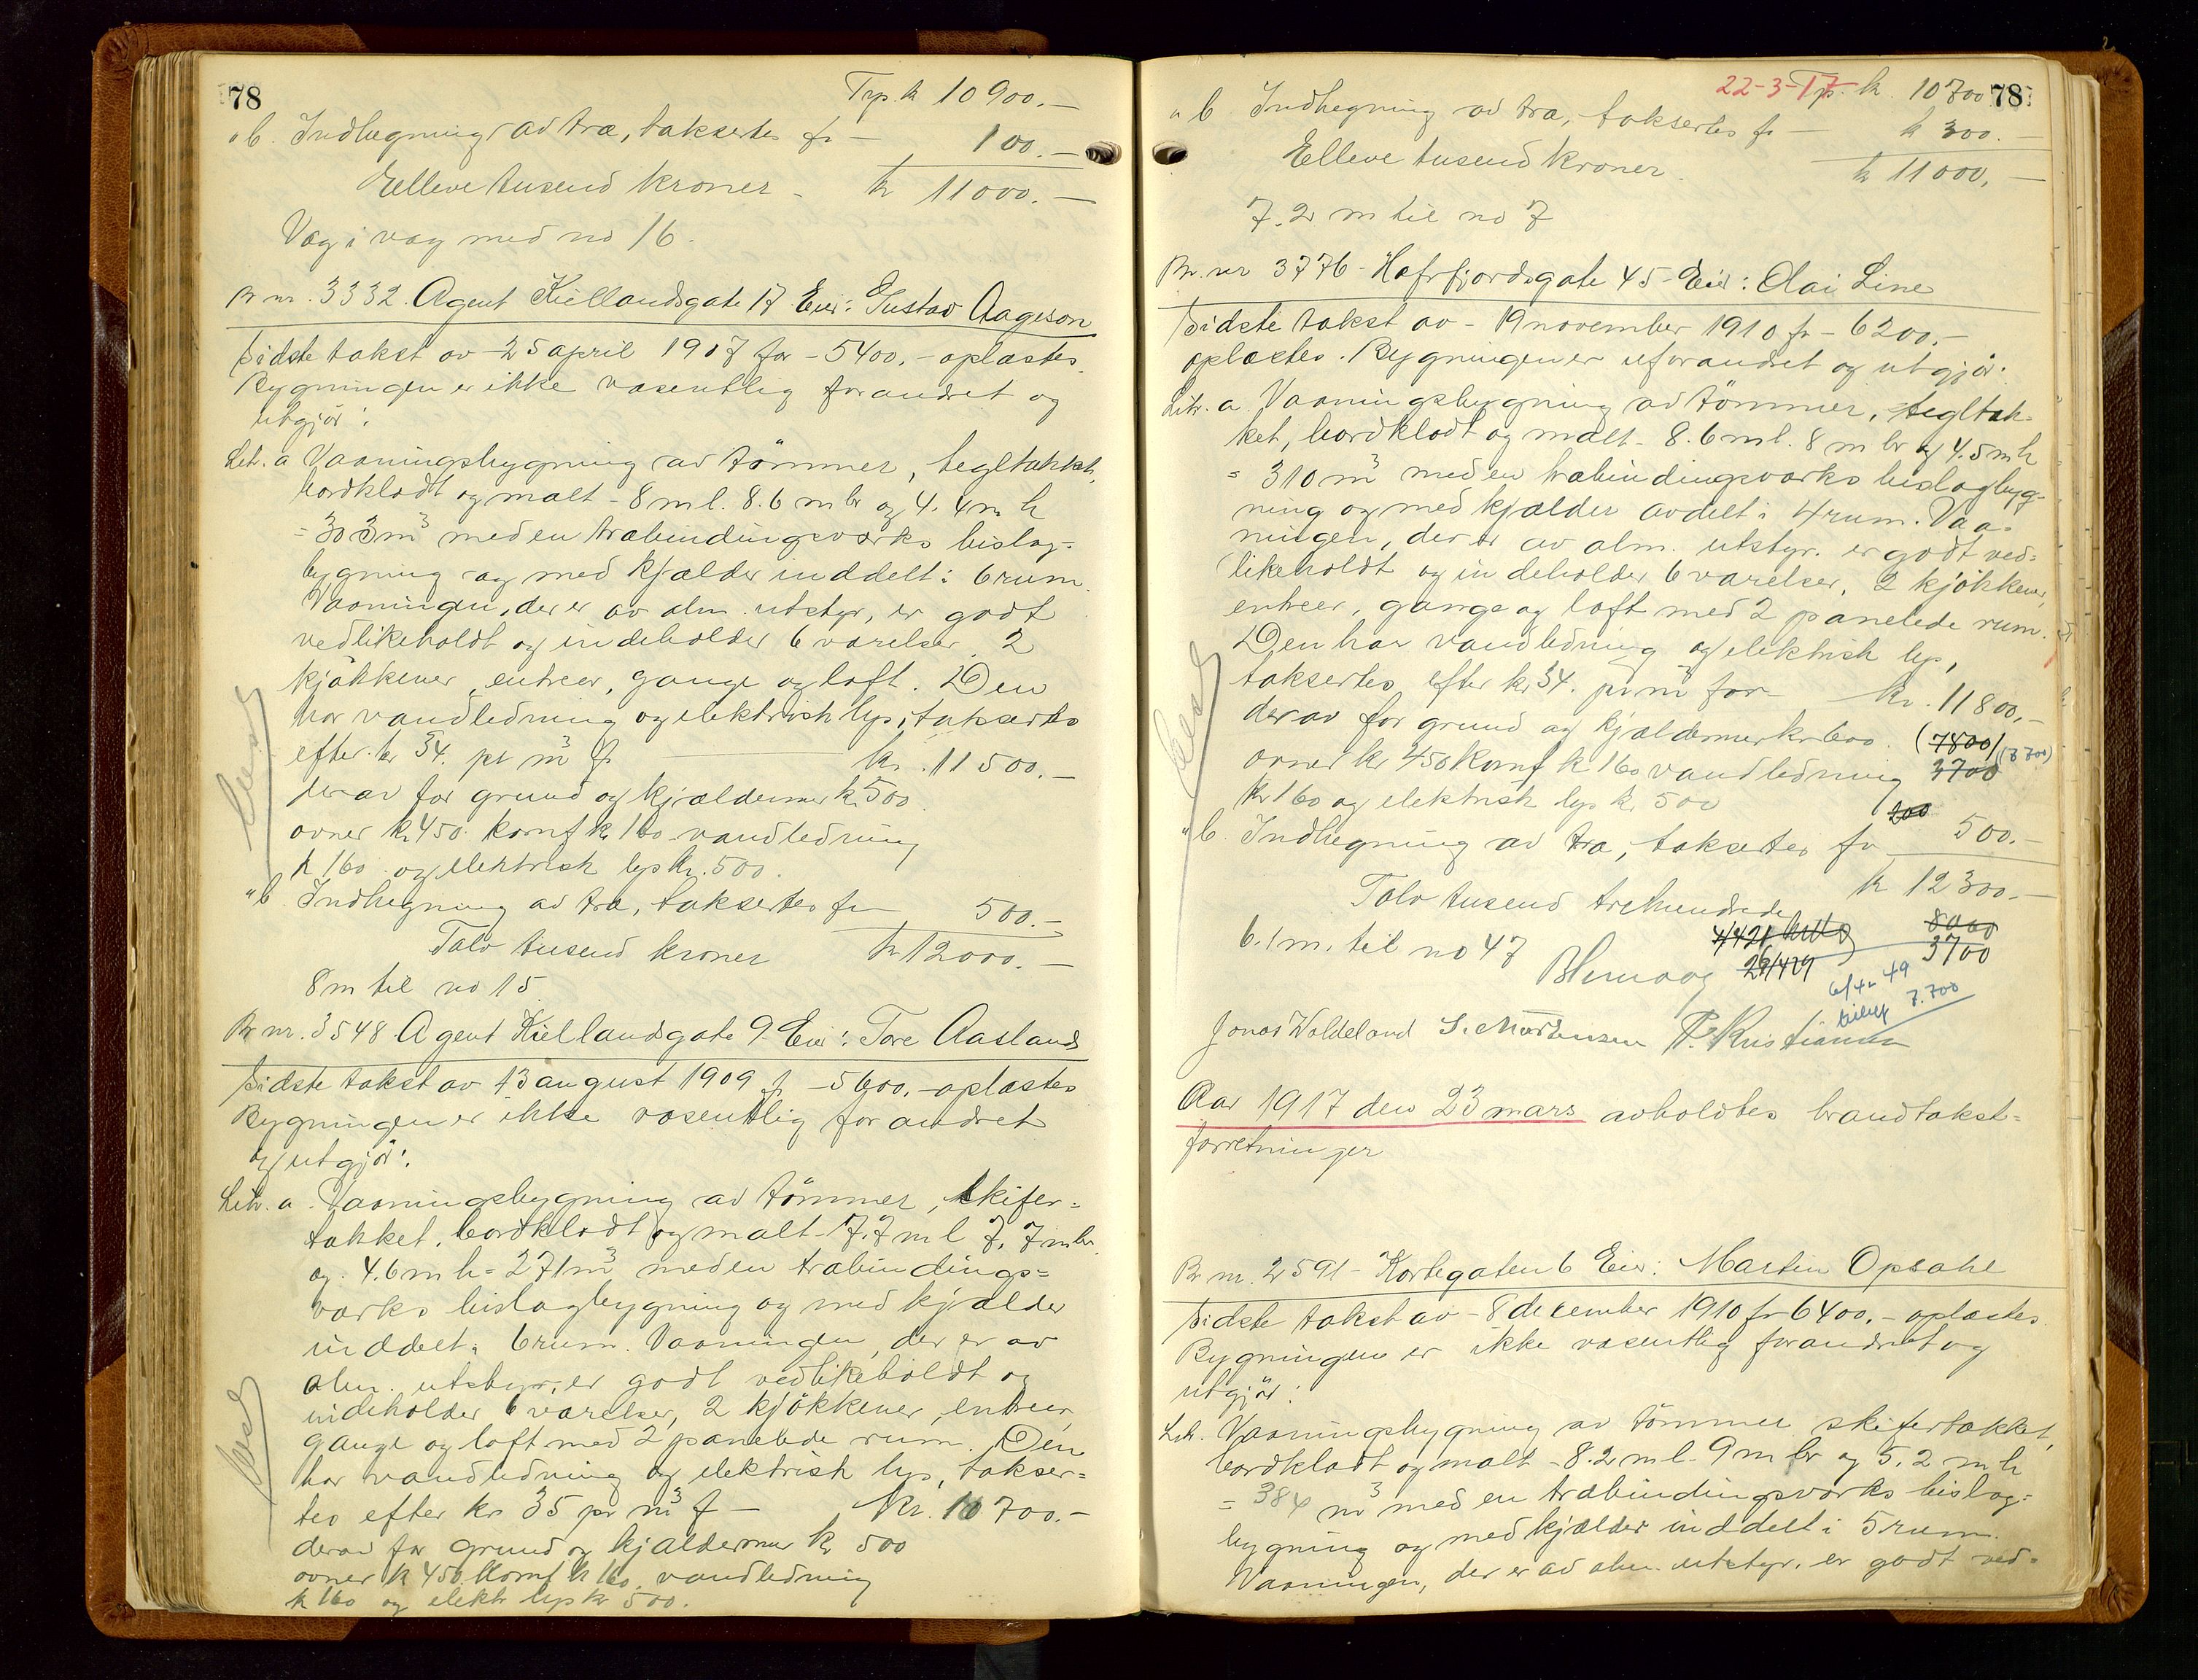 78
Trp. kr 10900.-
" b. Indhegning av træ, taksertes fr - 100.-
Elleve tusend kroner - kr 11000.-
Væg i væg med no 16.
Br nr. 3332. Agent Kiellandsgate 17 Eier: Gustav Aageson
Sidste takst av - 25 april 1907 for - 5400.- oplæstes.
Bygningen er ikke væsentlig forandret og
utgjör:
Litr. a Vaaningsbygning av tömmer, tegltækket,
bordklædt og malt - 8 m l. 8.6 m br og 4.4 m h
= 303 m³ med en træbindingsværks bislag-
bygning og med kjælder inddelt i 6 rum.
Vaaningen, der er av alm. utstyr, er godt
vedlikeholdt og indeholder 6 værelser, 2
kjøkkener, entreer, gange og loft. Den
har vandledning og elektrisk lys, taksertes
efter kr 34. pr m³ fr kr. 11500.-
derav for grund og kjældermur kr 500
ovner kr 450. komf kr 160 vandledning
kr 160 og elektrisk lys kr. 500.
" b Indhegning av træ, taksertes for 500.-
Tolv tusend kroner kr 12000.-
8 m til no 15.
Br nr. 3548. Agent Kiellandsgate 9. Eier: Tore Aasland
Sidste takst av 13 august 1909 f - 5600.- oplæstes
Bygningen er ikke væsentlig forandret
og utgjör:
Litr. a. Vaaningsbygning av tömmer, skifer=
tækket, bordklædt og malt - 7.7 m l 7.7 m br.
og 4.6 m h = 271 m³ med en træbindings=
værks bislagbygning og med kjælder
inddelt i 6 rum. Vaaningen, der er av
alm. utstyr, er godt vedlikeholdt og
indeholder 6 værelser, 2 kjökkener, entreer,
gange og loft med 2 panelede rum. Den
har vandledning og elektrisk lys, takser=
tes efter kr 35 pr m³ f - Kr. 10700.-
derav for grund og kjældermur kr 500
ovner kr 450. komf kr 160. vandledning
kr 160 og elektr lys kr 500.
22-3-17 Trp. kr. 10700 78
" b Indhegning av træ, taksertes fr - kr 300.-
Elleve tusend kroner. kr 11000.-
7.2 m til no 7
Br. nr 3776 - Hafrsfjordsgate 45 - Eier: Olai Line
Sidste takst av - 19 november 1910 fr - 6200.-
oplæstes. Bygningen er uforandret og utgjör:
Litr. a. Vaaningsbygning av tömmer, tegltæk-
ket, bordklædt og malt - 8.6 m l. 8 m br og 4.5 m h
= 310 m³ med en træbindingsværks bislagbyg-
ning og med kjælder avdelt i 4 rum. Vaa-
ningen, der er av alm. utstyr. er godt ved=
likeholdt og indeholder 6 værelser, 2 kjökkener,
entreer, gange og loft med 2 panelede rum.
Den har vandledning og elektrisk lys,
taksertes efter kr 34. pr m³ for kr. 11800.-
derav for grund og kjældermur kr 600. (7800) (7700)
ovner kr 450 komf kr 160 vandledning 3700
kr 160 og elektrisk lys kr. 500
200
" b. Indhegning av træ, taksertes fr 500.-
Tolv tusend trehundrede kr 12300.-
6.1 m. til no 47 8000
3700
6/4-49
7.700
Jonas Woldeland S. Mortensen P. Kristiansen
Aar 1917 den 23 mars avholdtes brandtakst=
forretninger
Br nr. 2591 - Kortegaten 6 Eier: Martin Opsahl
Sidste takst av - 8 december 1910 fr 6400.- oplæstes.
Bygningen er ikke væsentlig forandret og
utgjör:
Litr. Vaaningsbygning av tömmer skifertækket,
bordklædt og malt - 8.2 m l - 9 m br og 5.2 m h
= 384 m³ med en træbindingsværks bislag=
bygning og med kjælder inddelt i 5 rum.
Vaaningen, der er av alm. utstyr, er godt ved=